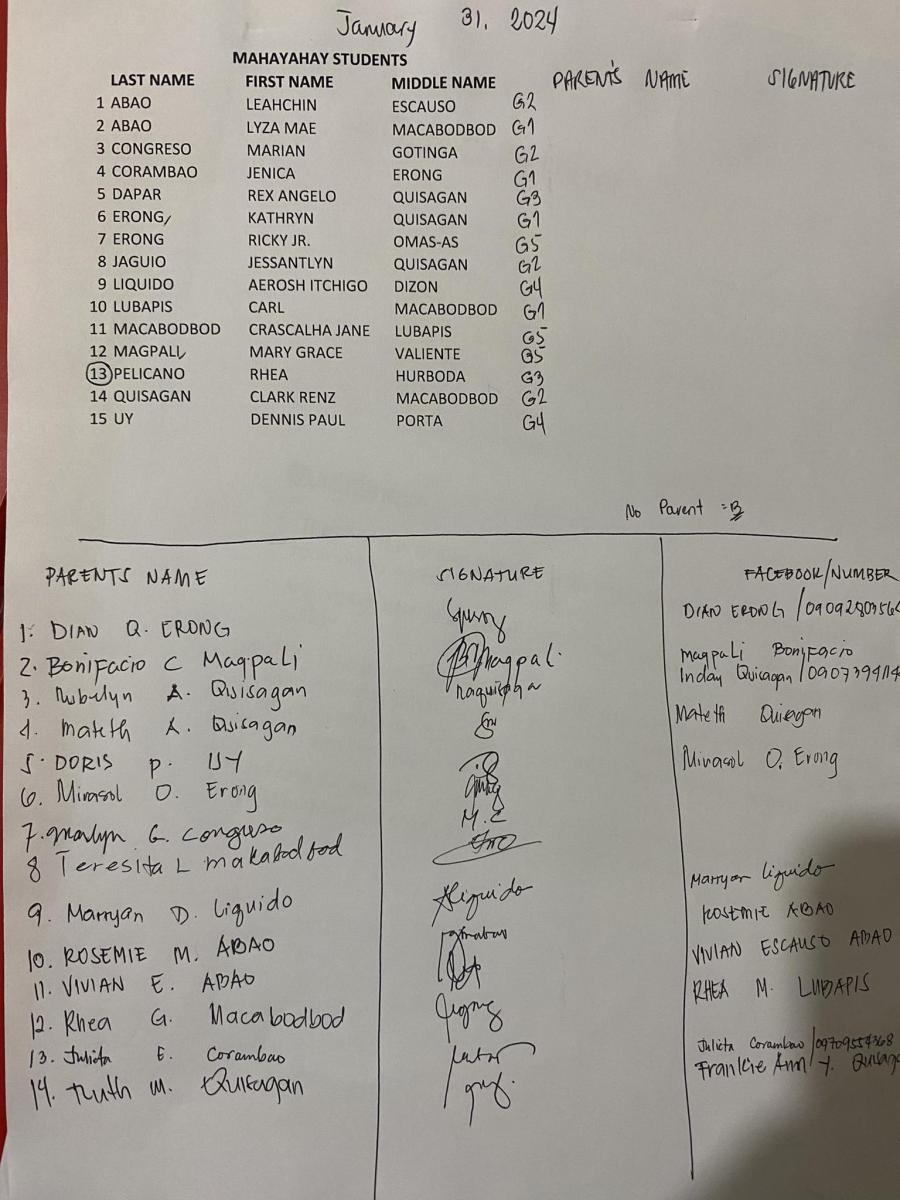 January 31, 2024
MAHAYAHAY STUDENTS
LAST NAME FIRST NAME MIDDLE NAME PARENTS NAME SIGNATURE
1 ABAO LEAHCHIN ESCAUSO G2
2 ABAO LYZA MAE MACABODBOD G1
3 CONGRESO MARIAN GOTINGA G2
4 CORAMBAO JENICA ERONG G1
5 DAPAR REX ANGELO QUISAGAN G3
6 ERONG KATHRYN QUISAGAN G1
7 ERONG RICKY JR. OMAS-AS G5
8 JAGUIO JESSANTLYN QUISAGAN G2
9 LIQUIDO AEROSH ITCHIGO DIZON G4
10 LUBAPIS CARL MACABODBOD G1
11 MACABODBOD CRASCALHA JANE LUBAPIS G5
12 MAGPALI MARY GRACE VALIENTE G5
13 PELICANO RHEA HURBODA G3
14 QUISAGAN CLARK RENZ MACABODBOD G2
15 UY DENNIS PAUL PORTA G4
No Parent = 13
PARENTS NAME SIGNATURE FACEBOOK/NUMBER
1. DIAN Q. ERONG DIAN ERONG /
2. Bonifacio C Magpali Magpali. magpali Bonifacio
3. A. Quisagan Inday Quisagan /
4. mateth A. Quisagan Mateth Quisagan
5. DORIS P. UY
6. Mirasol O. Erong Mirasol O. Erong
7. G. Congreso M.C
8 Teresita L makabodbod
9. Marryan D. Liquido Aliquido Marryan Liquido
10. ROSEMIE M. ABAO ROSEMIE ABAO
11. VIVIAN E. ABAO VIVIAN ESCAUSO ABAO
12. Rhea G. Macabodbod RHEA M. LUBAPIS
13. Julieta E. Corambao Julieta Corambao /09709554368
14. M. Quisagan Frankie Ann Y.